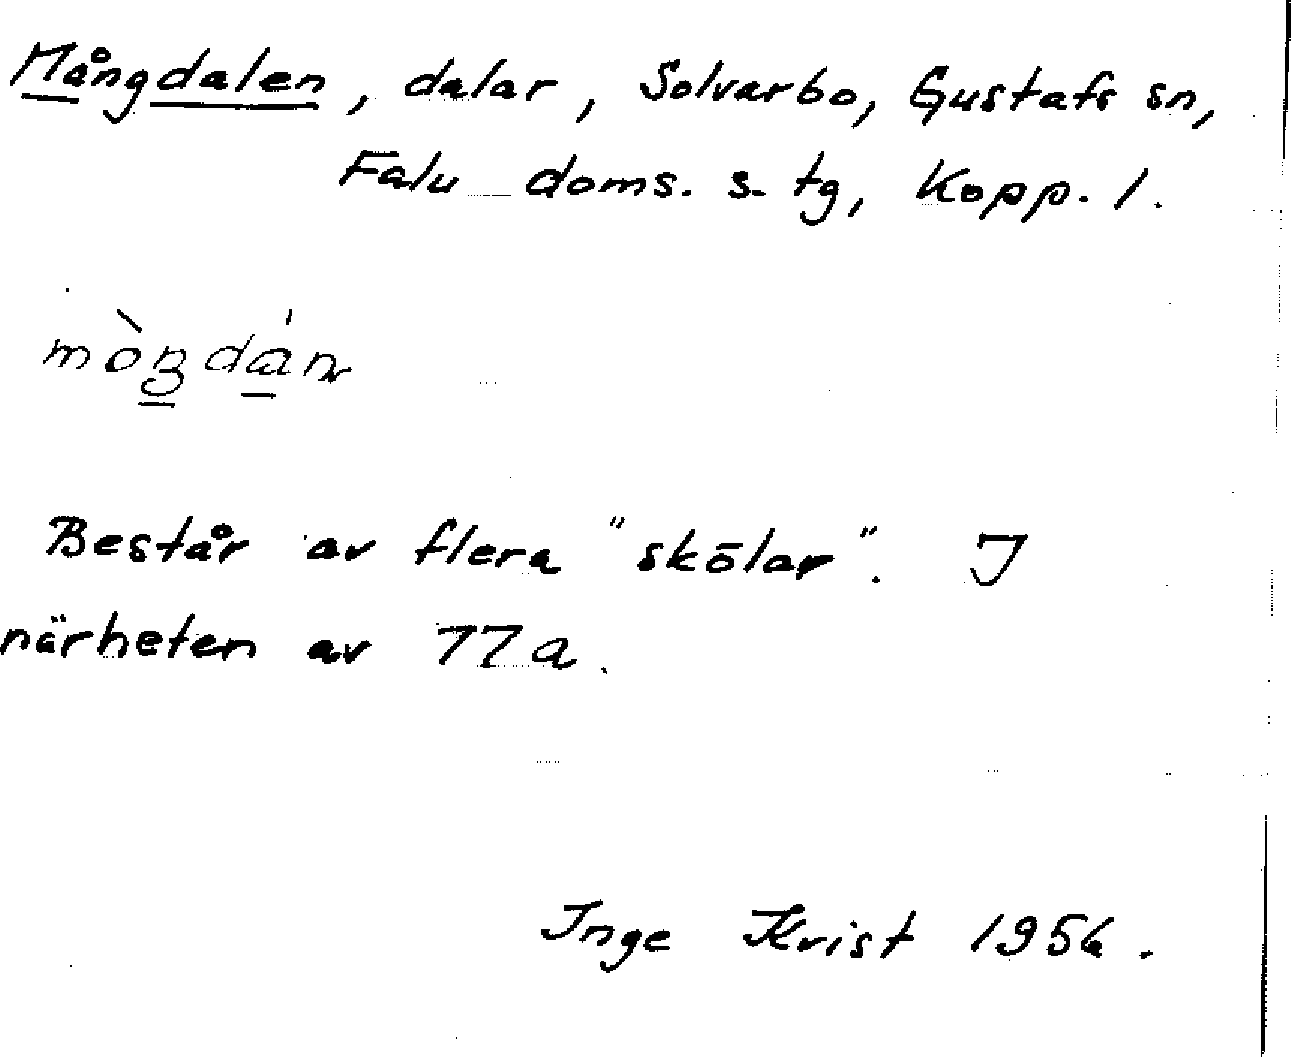 Mångdalen, dalar, Solvarbo, Gustafs sn,
Falu doms. s. tg, Kopp. l.
Består av flera "skölar". I
närheten av 77a.
Inge Krist